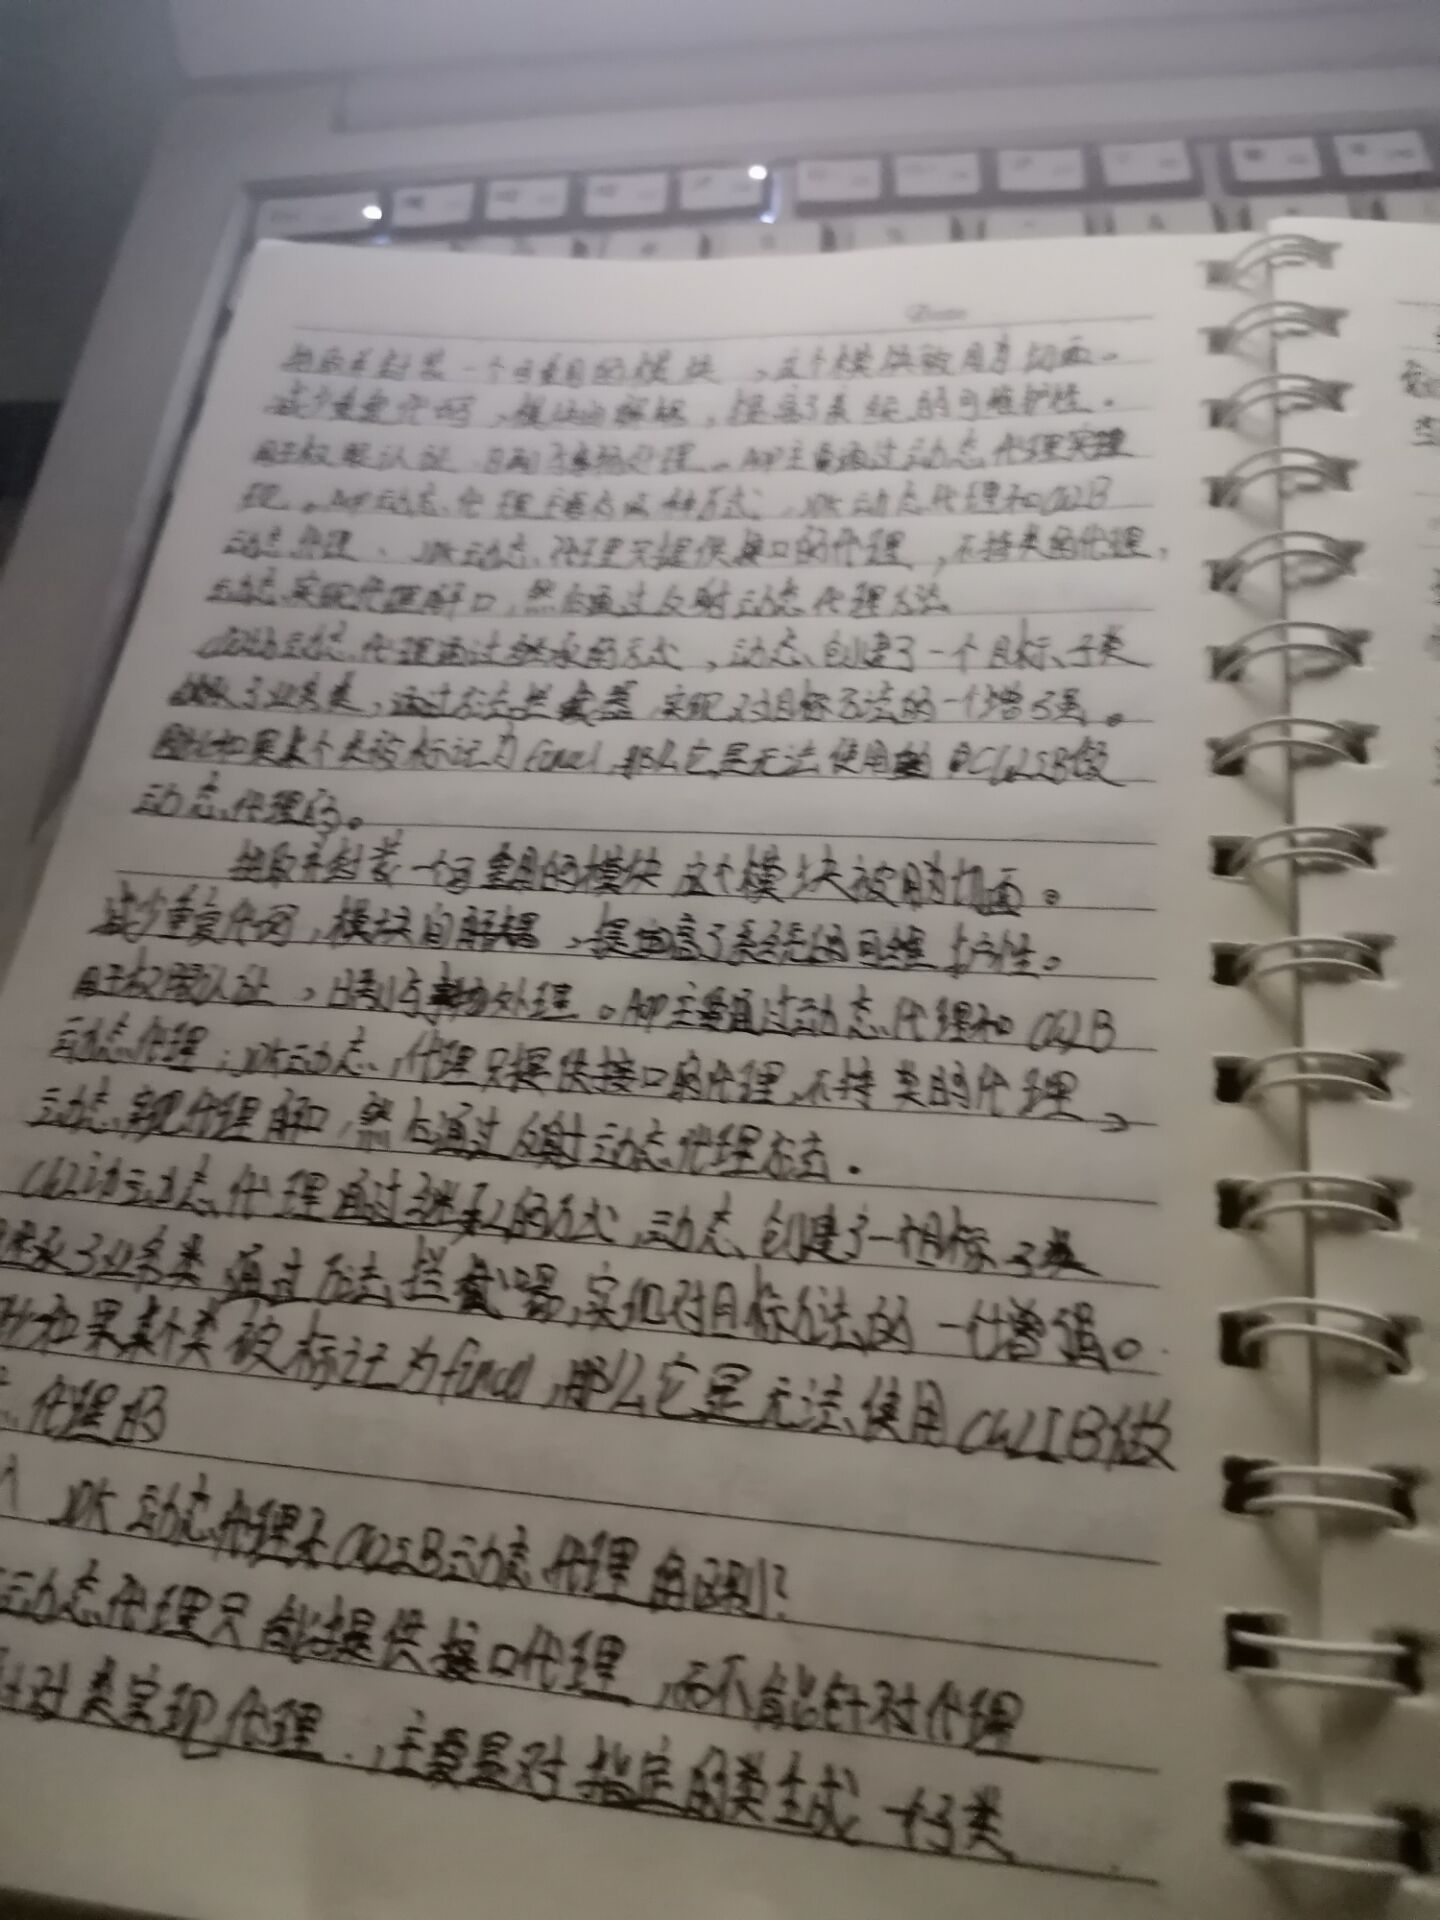 Date
抽取并封装一个可重用的模块，这个模块被用为切面。
减少重复代码，模块间解耦，提高了系统的可维护性。
用于权限认证、日志与事务处理。AOP主要通过动态代理实
现。AOP动态代理主要有两种方式，JDK动态代理和CGLIB
动态代理、JDK动态代理只提供接口的代理，不持类的代理，
动态实现代理解口，然后通过反射动态代理方法
动态代理通过继承的方式，动态创建了一个目标子类
继承了业务类，通过方法拦截器实现对目标方法的一个增强。
因此如果某个类被标记为final，那么它是无法使用CGLIB做
动态代理的。
抽取并封装一个可重用的模块 这个模块被用为切面。
减少重复代码，模块间解耦，提高了系统的可维护性。
用于权限认证，日志与事物处理。AOP主要通过动态代理和CGLIB
动态代理；JDK动态代理只提供接口的代理，不持类的代理，
动态实现代理解口，然后通过反射动态代理方法.
动态代理通过继承的方式，动态创建了一个目标子类
继承了业务类 通过方法拦截器，实现对目标方法的一个增强。
如果某个类被标记为final，那么它是无法使用CGLIB做
代理的
JDK动态代理和CGLIB动态代理的区别？
动态代理只能提供接口代理，而不能针对代理
针对类实现代理，主要是对指定的类生成一个子类